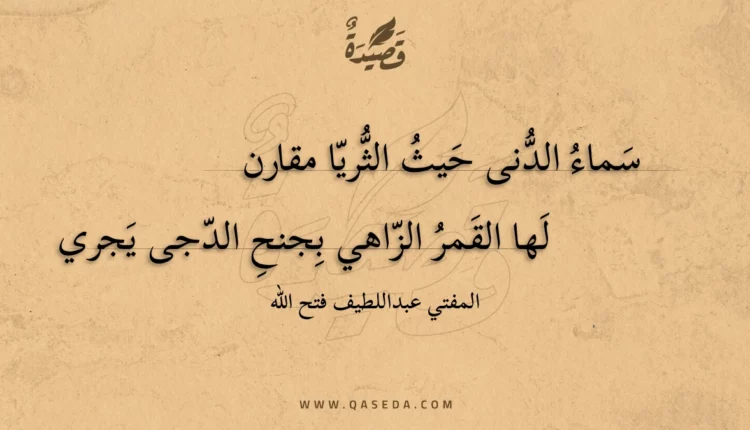 قَصِيدَةٌ
سَماءُ الدُّنى حَيثُ الثُّريّا مقارن
لَها القَمرُ الزّاهي بِجنحِ الدّجى يَجري
المفتي عبداللطيف فتح الله
WWW.QASEDA.COM